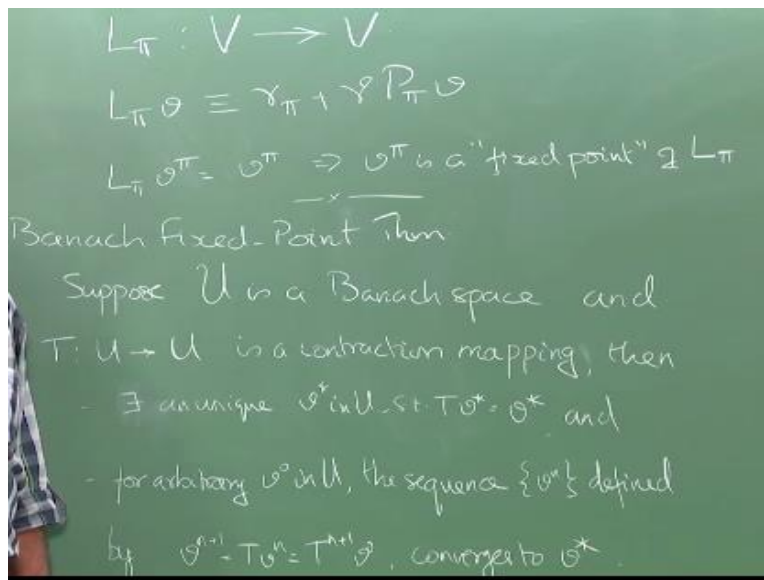 L_π : V → V
L_π v ≡ r_π + γ P_π v
L_π v^π = v^π ⇒ v^π is a "fixed point" of L_π
Banach Fixed-Point Thm
Suppose U is a Banach space and
T: U → U is a contraction mapping, then
- ∃ an unique v* in U s.t. Tv* = v* and
- for arbitrary v⁰ in U, the sequence {vⁿ} defined
by vⁿ⁺¹ = Tvⁿ = Tⁿ⁺¹v⁰, converges to v*.